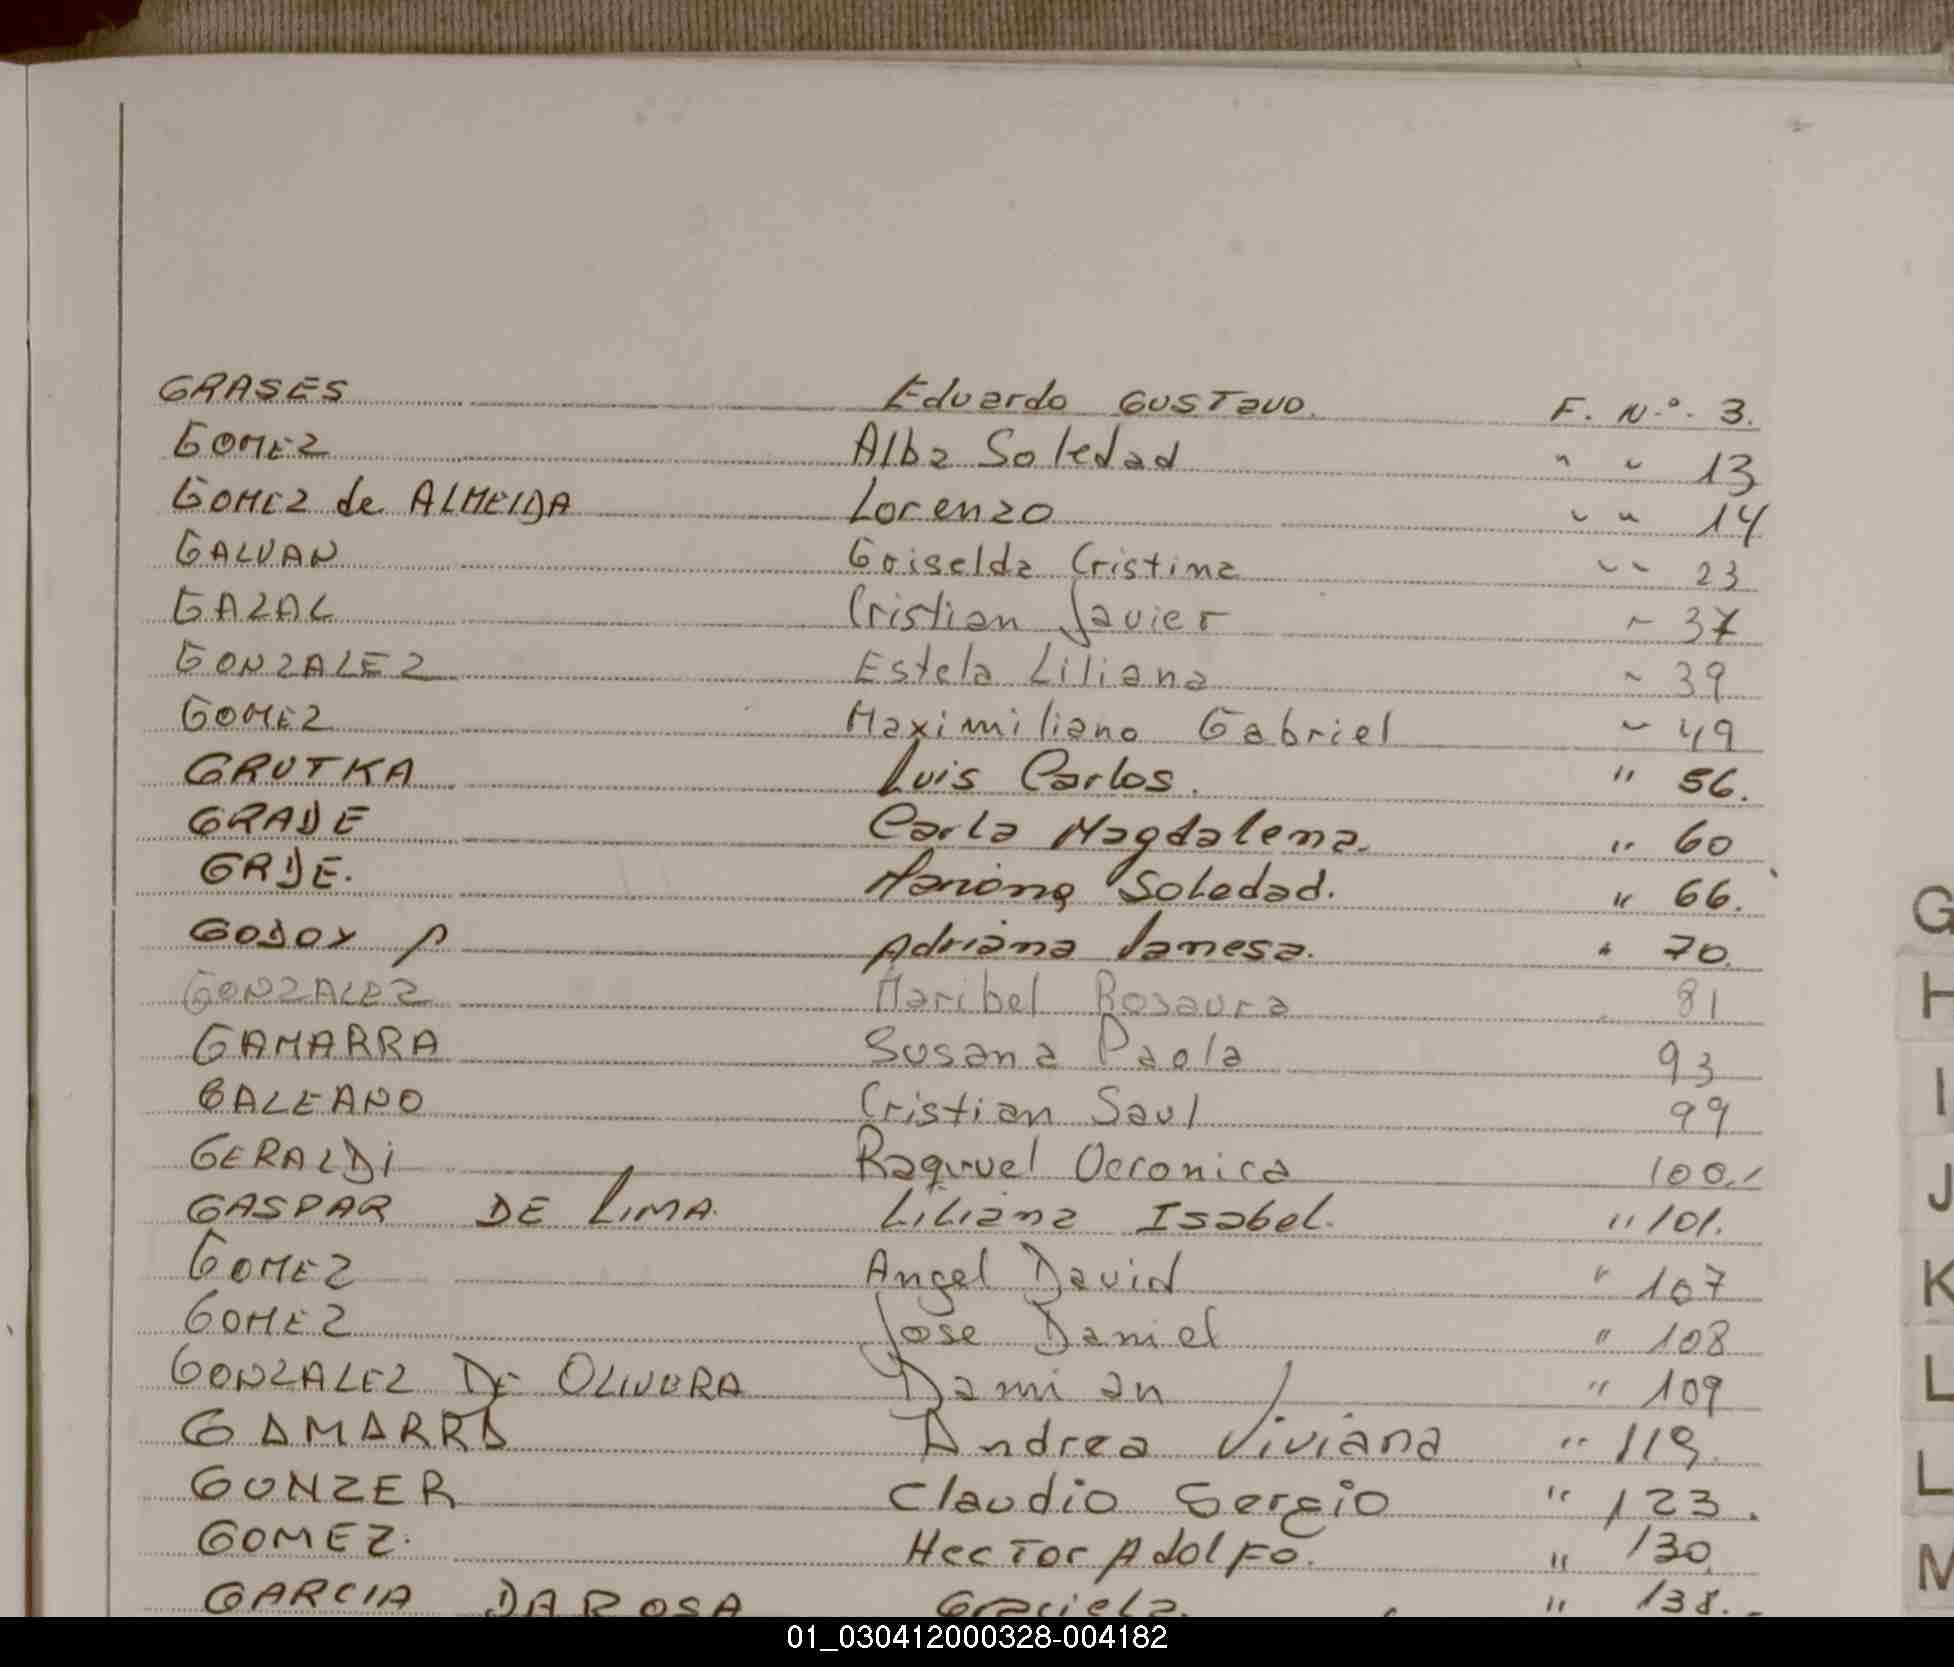 GRASES Eduardo GUSTavo. F. N.º. 3.
GOMEZ Alba Soledad " " 13
GOMEZ de ALMEIDA Lorenzo " " 14
GALVAN Griselda Cristina " " 23
GAZAL Cristian Javier " 37
GONZALEZ Estela Liliana " 39
GOMEZ Maximiliano Gabriel " 49
GRUTKA Luis Carlos. " 56.
GRADE Carla Magdalena. " 60
GRDE. Mariana Soledad. " 66.
GODOY Adriana Vanesa. " 70.
GONZALEZ Maribel Rosaura 81
GAMARRA Susana Paola 93
GALEANO Cristian Saul 99
GERALDI Raquel Veronica 100
GASPAR DE LIMA. Liliana Isabel. " 101.
GOMEZ Angel David " 107
GOMEZ Jose Daniel " 108
GONZALEZ DE OLIVERA Damian " 109
GAMARRA Andrea Viviana " 119.
GUNZER Claudio Sergio " 123.
GOMEZ. HecTor Adolfo. " 130.
GARCIA DA ROSA Graciela. " 138.
G
H
I
J
K
L
L
M
01_030412000328-004182